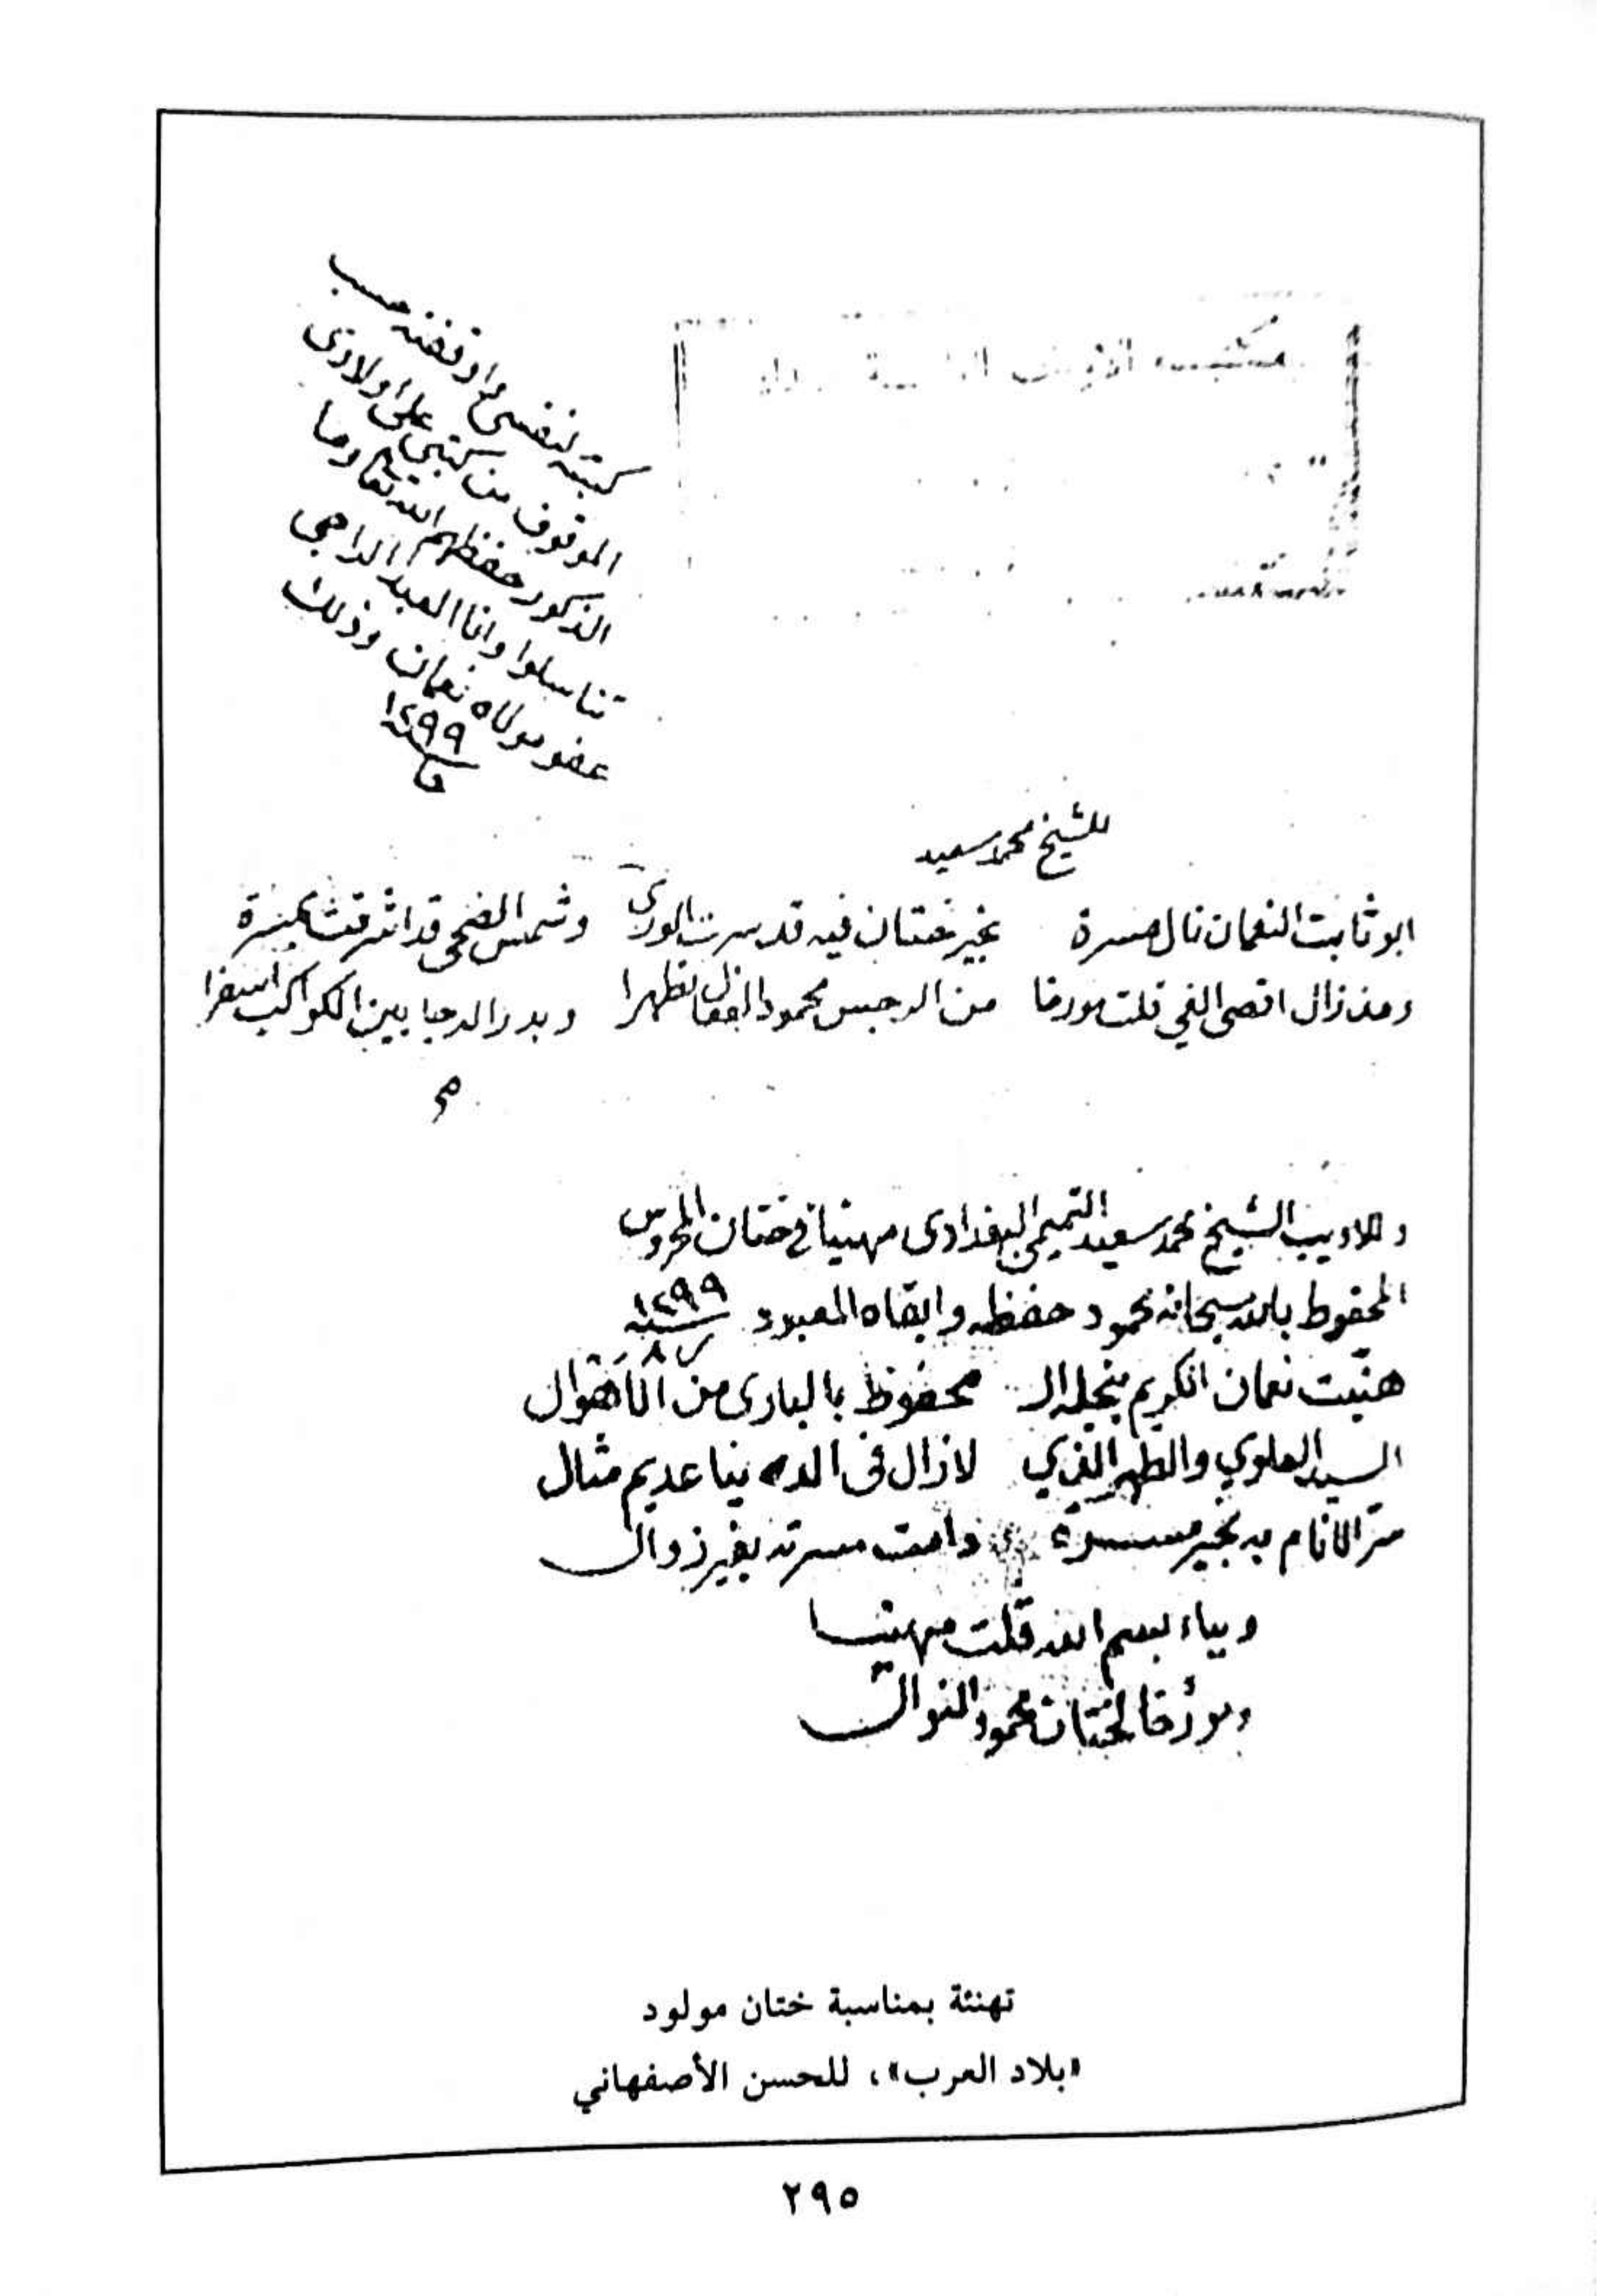 كتبته لنفسي واوقفته حسب
الموقوف من كتبي على اولادي
الذكور حفظهم الله تعا وما
تناسلوا وانا العبد الراجي
عفو مولاه نعمان وذلك
سنة ١٢٩٩
مكتبة
للشيخ محمد سعيد
ابو ثابت النعمان نال مسرة بخير ختان فيه قد سرت الورى وشمس الضحى قد اشرقت
ومذ زال اقصى الغي قلت مورخا من الرجس محمود الفعال تطهرا وبدر الدجا بين الكواكب اسفرا
وللاديب الشيخ محمد سعيد التميمي البغدادى مهنيا في ختان المحروس
المحفوظ بالله سبحانه محمود حفظه وابقاه المعبود سنة ١٢٩٩
هنيت نعمان الكريم بنجله الـ محفوظ بالبارى من الأهوال
السيد العلوي والطهر الذي لا زال فى الدنيا عديم مثال
سرّ الانام به بخير مسرة دامت مسرته بغير زوال
وبباء بسم الله قلت مهنيا
ومؤرخا لختان محمود النوال
تهنئة بمناسبة ختان مولود
«بلاد العرب»، للحسن الأصفهاني
٢٩٥